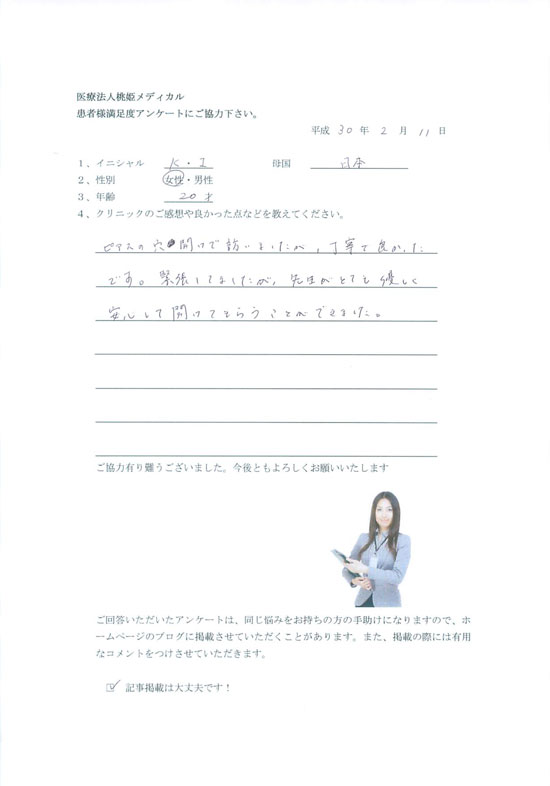 医療法人桃姫メディカル
患者様満足度アンケートにご協力下さい。
平成 30 年 2 月 11 日
1、イニシャル K・I 母国 日本
2、性別 女性・男性
3、年齢 20才
4、クリニックのご感想や良かった点などを教えてください。
ピアスの穴開けで訪いましたが、丁寧で良かった
です。緊張してましたが、先生がとても優しく
安心して開けてもらうことができました。
ご協力有り難うございました。今後ともよろしくお願いいたします
ご回答いただいたアンケートは、同じ悩みをお持ちの方の手助けになりますので、ホ
ームページのブログに掲載させていただくことがあります。また、掲載の際には有用
なコメントをつけさせていただきます。
☑ 記事掲載は大丈夫です！